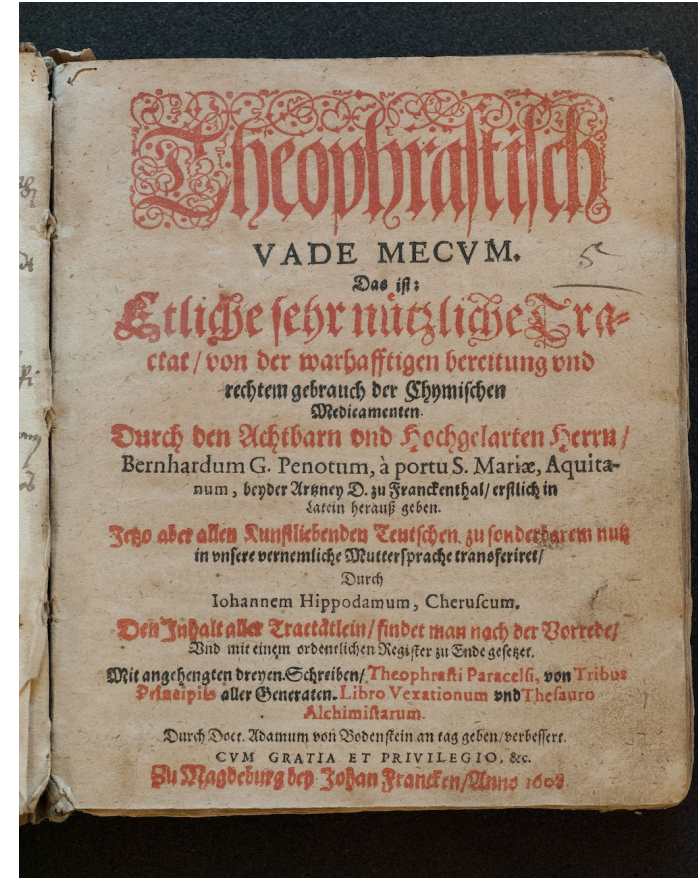 Theophrastisch
VADE MECVM.
Das ist:
Etliche sehr nützliche Tra-
ctat / von der warhafftigen bereitung vnd
rechtem gebrauch der Chymischen
Medicamenten.
Durch den Achtbarn vnd Hochgelarten Herrn /
Bernhardum G. Penotum, à portu S. Mariæ, Aquita-
num, beyder Artzney D. zu Franckenthal / erstlich in
Latein herauß geben.
Jetzo aber allen Kunstliebenden Teutschen zu sonderbarem nutz
in vnsere vernemliche Muttersprache transferiret /
Durch
Iohannem Hippodamum, Cheruscum.
Den Inhalt aller Tractätlein / findet man nach der Vorrede /
Vnd mit einem ordentlichen Register zu Ende gesetzet.
Mit angehengten dreyen Schreiben / Theophrasti Paracelsi, von Tribus
Principiis aller Generaten. Libro Vexationum vnd Thesauro
Alchimistarum.
Durch Doct. Adamum von Bodenstein an tag geben / verbessert.
CVM GRATIA ET PRIVILEGIO, &c.
Zu Magdeburg bey Johan Francken / Anno 1608